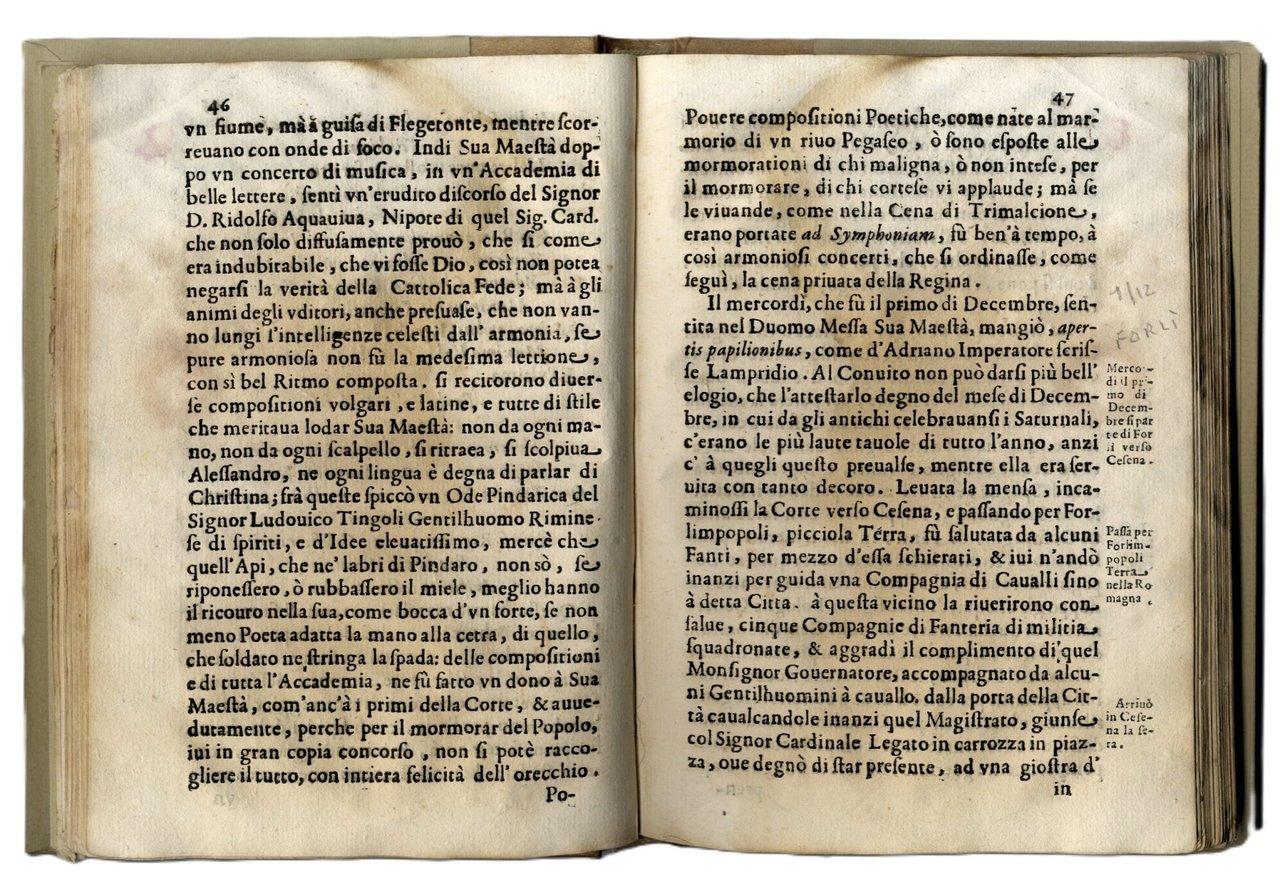 46
vn fiume, mà à guisa di Flegetonte, mentre scor-
reuano con onde di foco. Indi Sua Maestà dop-
po vn concerto di musica, in vn'Accademia di
belle lettere, sentì vn'erudito discorso del Signor
D. Ridolfo Aquauiua, Nipote di quel Sig. Card.
che non solo diffusamente prouò, che si come
era indubitabile, che vi fosse Dio, così non potea
negarsi la verità della Cattolica Fede; mà à gli
animi degli vditori, anche presuase, che non van-
no lungi l'intelligenze celesti dall' armonia, se
pure armoniosa non fù la medesima lettione,
con sì bel Ritmo composta. si recitorono diuer-
se compositioni volgari, e latine, e tutte di stile
che meritaua lodar Sua Maestà: non da ogni ma-
no, non da ogni scalpello, si ritraea, si scolpiua
Alessandro, ne ogni lingua è degna di parlar di
Christina; frà queste spiccò vn Ode Pindarica del
Signor Ludouico Tingoli Gentilhuomo Rimine-
se di spiriti, e d'Idee eleuatissimo, mercè che
quell'Api, che ne' labri di Pindaro, non sò, se
riponessero, ò rubbassero il miele, meglio hanno
il ricouro nella sua, come bocca d'vn forte, se non
meno Poeta adatta la mano alla cetra, di quello,
che soldato ne stringa la spada: delle compositioni
e di tutta l'Accademia, ne fù fatto vn dono à Sua
Maestà, com'anc'à i primi della Corte, & auue-
dutamente, perche per il mormorar del Popolo,
iui in gran copia concorso, non si potè racco-
gliere il tutto, con intiera felicità dell' orecchio.
Po-
47
Pouere compositioni Poetiche, come nate al mar-
morio di vn riuo Pegaseo, ò sono esposte alle
mormorationi di chi maligna, ò non intese, per
il mormorare, di chi cortese vi applaude; mà se
le viuande, come nella Cena di Trimalcione,
erano portate ad Symphoniam, fù ben'à tempo, à
così armoniosi concerti, che si ordinasse, come
seguì, la cena priuata della Regina.
Il mercordì, che fù il primo di Decembre, sen-
tita nel Duomo Messa Sua Maestà, mangiò, aper-
tis papilionibus, come d'Adriano Imperatore scris-
se Lampridio. Al Conuito non può darsi più bell'
elogio, che l'attestarlo degno del mese di Decem-
bre, in cui da gli antichi celebrauansi i Saturnali,
c'erano le più laute tauole di tutto l'anno, anzi
c' à quegli questo preualse, mentre ella era ser-
uita con tanto decoro. Leuata la mensa, inca-
minossi la Corte verso Cesena, e passando per For-
limpopoli, picciola Terra, fù salutata da alcuni
Fanti, per mezzo d'essa schierati, & iui n'andò
inanzi per guida vna Compagnia di Caualli sino
à detta Citta. à questa vicino la riuerirono con
salue, cinque Compagnie di Fanteria di militia
squadronate, & aggradì il complimento di quel
Monsignor Gouernatore, accompagnato da alcu-
ni Gentilhuomini à cauallo. dalla porta della Cit-
tà caualcandole inanzi quel Magistrato, giunse
col Signor Cardinale Legato in carrozza in piaz-
za, oue degnò di star presente, ad vna giostra d'
in
1/12
FORLÌ
Merco-
dì il pri-
mo di
Decem-
bre si par
te di For
lì verso
Cesena.
Passa per
Forlim-
popoli
Terra
nella Ro
magna.
Arriuò
in Cese-
na la se-
ra.